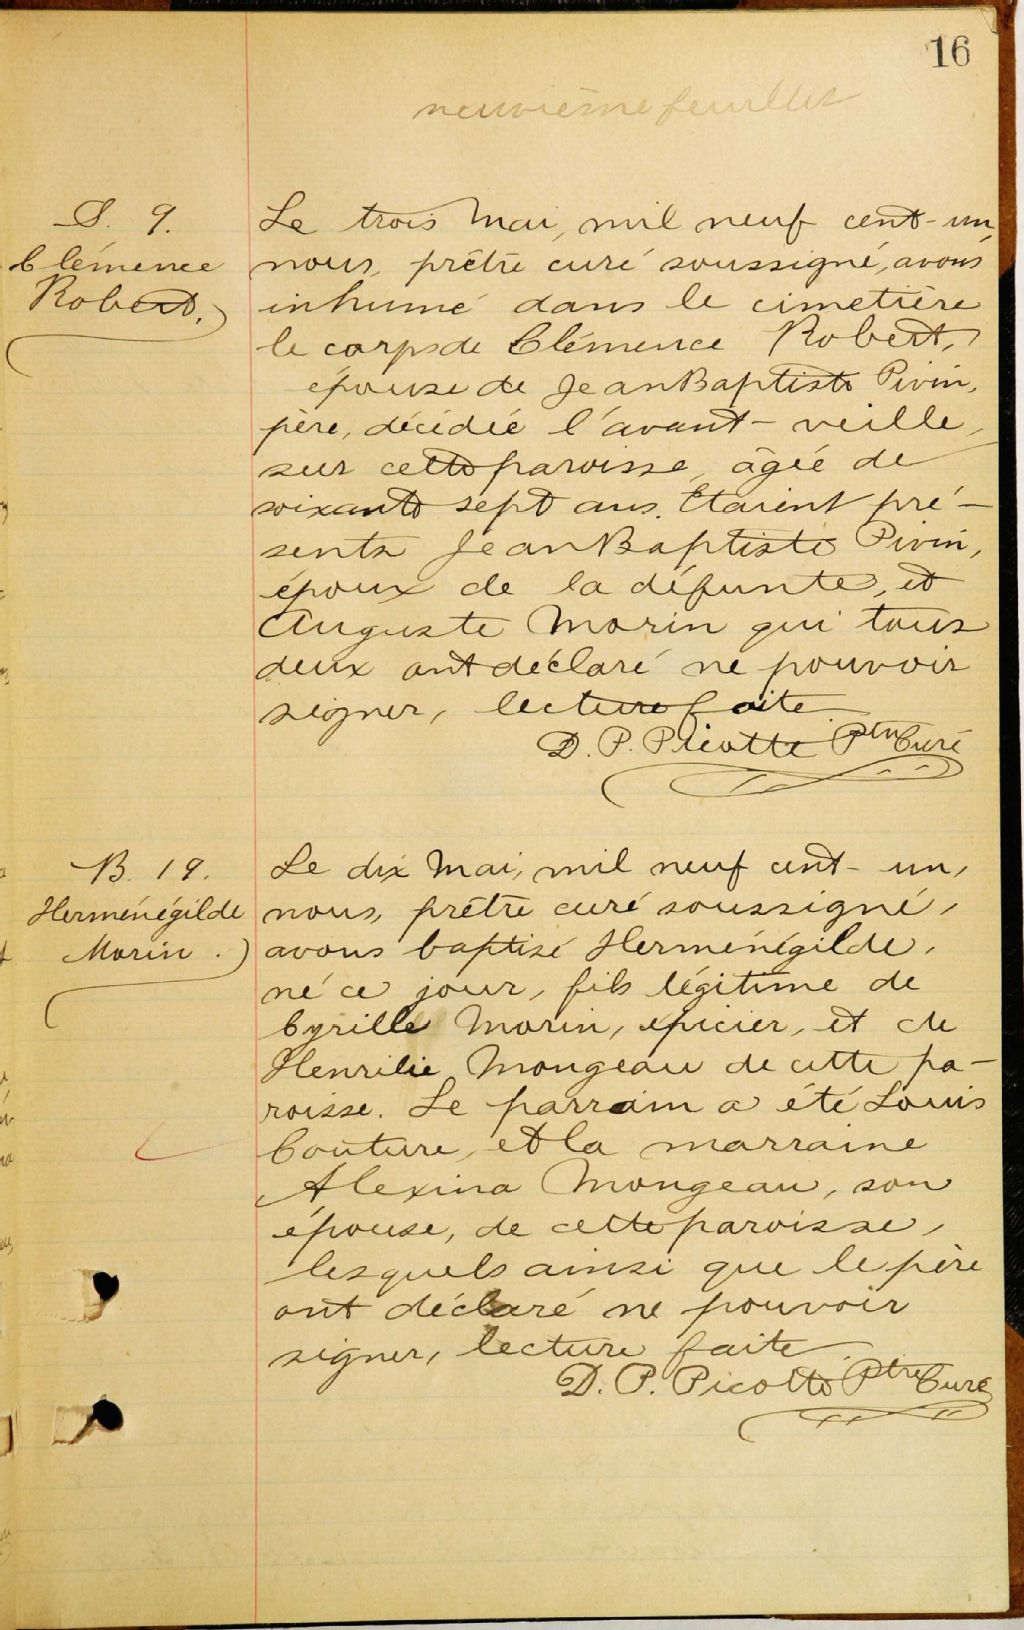 16
neuvième feuillet
S. 9.
Clémence
Robert.
Le trois Mai, mil neuf cent-un,
nous, prêtre curé soussigné, avons
inhumé dans le cimetière
le corps de Clémence Robert,
épouse de Jean Baptiste Pivin,
père, décédée l'avant-veille,
sur cette paroisse, âgée de
soixante sept ans. Etaient pré-
sents Jean Baptiste Pivin,
époux de la défunte, et
Auguste Morin qui tous
deux ont déclaré ne pouvoir
signer, lecture faite.
D. P. Picotte Ptre Curé
B. 19.
Herménégilde
Morin.
Le dix Mai, mil neuf cent-un,
nous, prêtre curé soussigné,
avons baptisé Herménégilde,
né ce jour, fils légitime de
Cyrille Morin, épicier, et de
Henrilie Mongeau de cette pa-
roisse. Le parrain a été Louis
Couture, et la marraine
Alexina Mongeau, son
épouse, de cette paroisse,
lesquels ainsi que le père
ont déclaré ne pouvoir
signer, lecture faite.
D. P. Picotte Ptre Curé